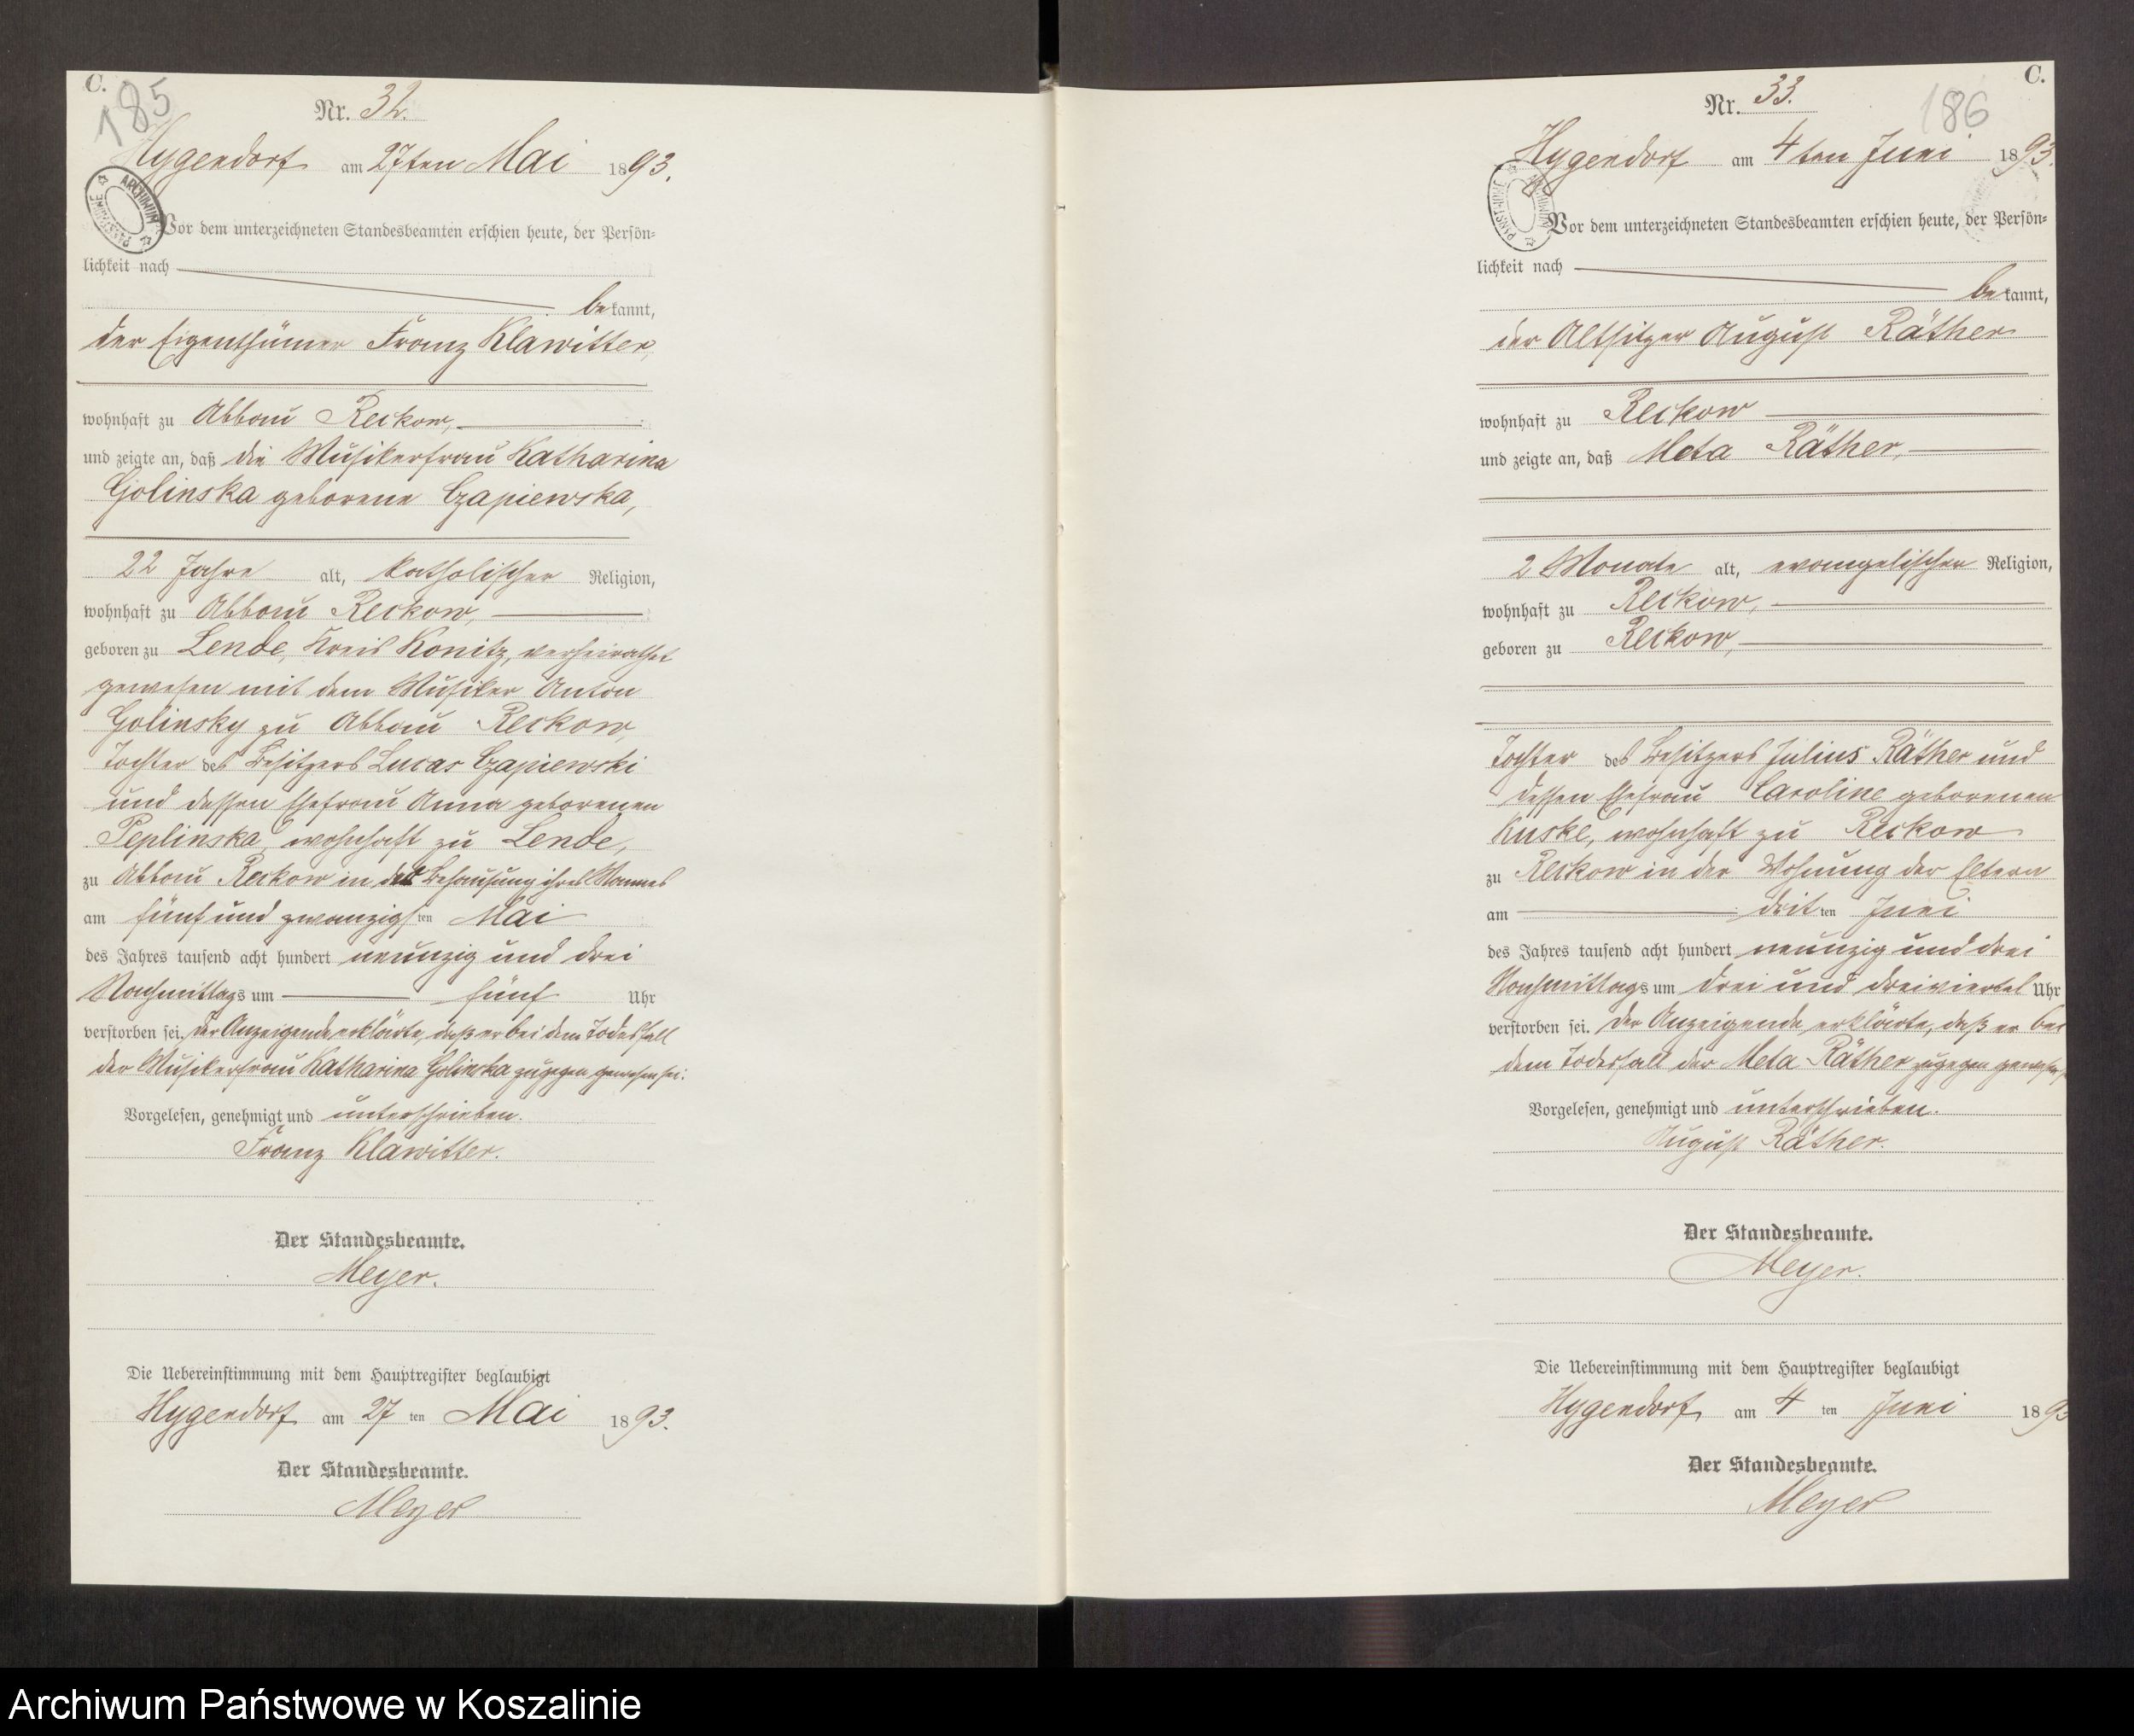 C.
185
Nr. 32.
Hygendorf am 27ten Mai 1893.
ARCHIWUM PAŃSTWOWE
Vor dem unterzeichneten Standesbeamten erschien heute, der Persön-
lichkeit nach
bekannt,
der Eigenthümer Franz Klawitter,
wohnhaft zu Abbau Reckow,
und zeigte an, daß die Musikerfrau Katharina
Golinska geborene Czapiewska,
22 Jahre alt, katholischer Religion,
wohnhaft zu Abbau Reckow,
geboren zu Lende, Kreis Konitz, verheirathet
gewesen mit dem Musiker Anton
Golinsky zu Abbau Reckow,
Tochter des Besitzers Lucas Czapiewski
und dessen Ehefrau Anna geborenen
Peplinska, wohnhaft zu Lende,
zu Abbau Reckow in der Behausung ihres Mannes
am fünf und zwanzigsten Mai
des Jahres tausend acht hundert neunzig und drei
Nachmittags um fünf Uhr
verstorben sei. Der Anzeigende erklärte, daß er bei dem Todesfall
der Musikerfrau Katharina Golinska zugegen gewesen sei.
Vorgelesen, genehmigt und unterschrieben.
Franz Klawitter.
Der Standesbeamte.
Meyer.
Die Uebereinstimmung mit dem Hauptregister beglaubigt
Hygendorf am 27 ten Mai 1893.
Der Standesbeamte.
Meyer
C.
186
Nr. 33.
Hygendorf am 4ten Juni 1893.
ARCHIWUM PAŃSTWOWE
Vor dem unterzeichneten Standesbeamten erschien heute, der Persön-
lichkeit nach
bekannt,
der Altsitzer August Räther
wohnhaft zu Reckow
und zeigte an, daß Meta Räther,
2 Monate alt, evangelischer Religion,
wohnhaft zu Reckow,
geboren zu Reckow,
Tochter des Besitzers Julius Räther und
dessen Ehefrau Caroline geborenen
Kuske, wohnhaft zu Reckow
zu Reckow in der Wohnung der Eltern
am dritten Juni
des Jahres tausend acht hundert neunzig und drei
Nachmittags um drei und dreiviertel Uhr
verstorben sei. Der Anzeigende erklärte, daß er bei
dem Todesfall der Meta Räther zugegen gewesen
Vorgelesen, genehmigt und unterschrieben.
August Räther.
Der Standesbeamte.
Meyer.
Die Uebereinstimmung mit dem Hauptregister beglaubigt
Hygendorf am 4 ten Juni 1893
Der Standesbeamte.
Meyer
Archiwum Państwowe w Koszalinie